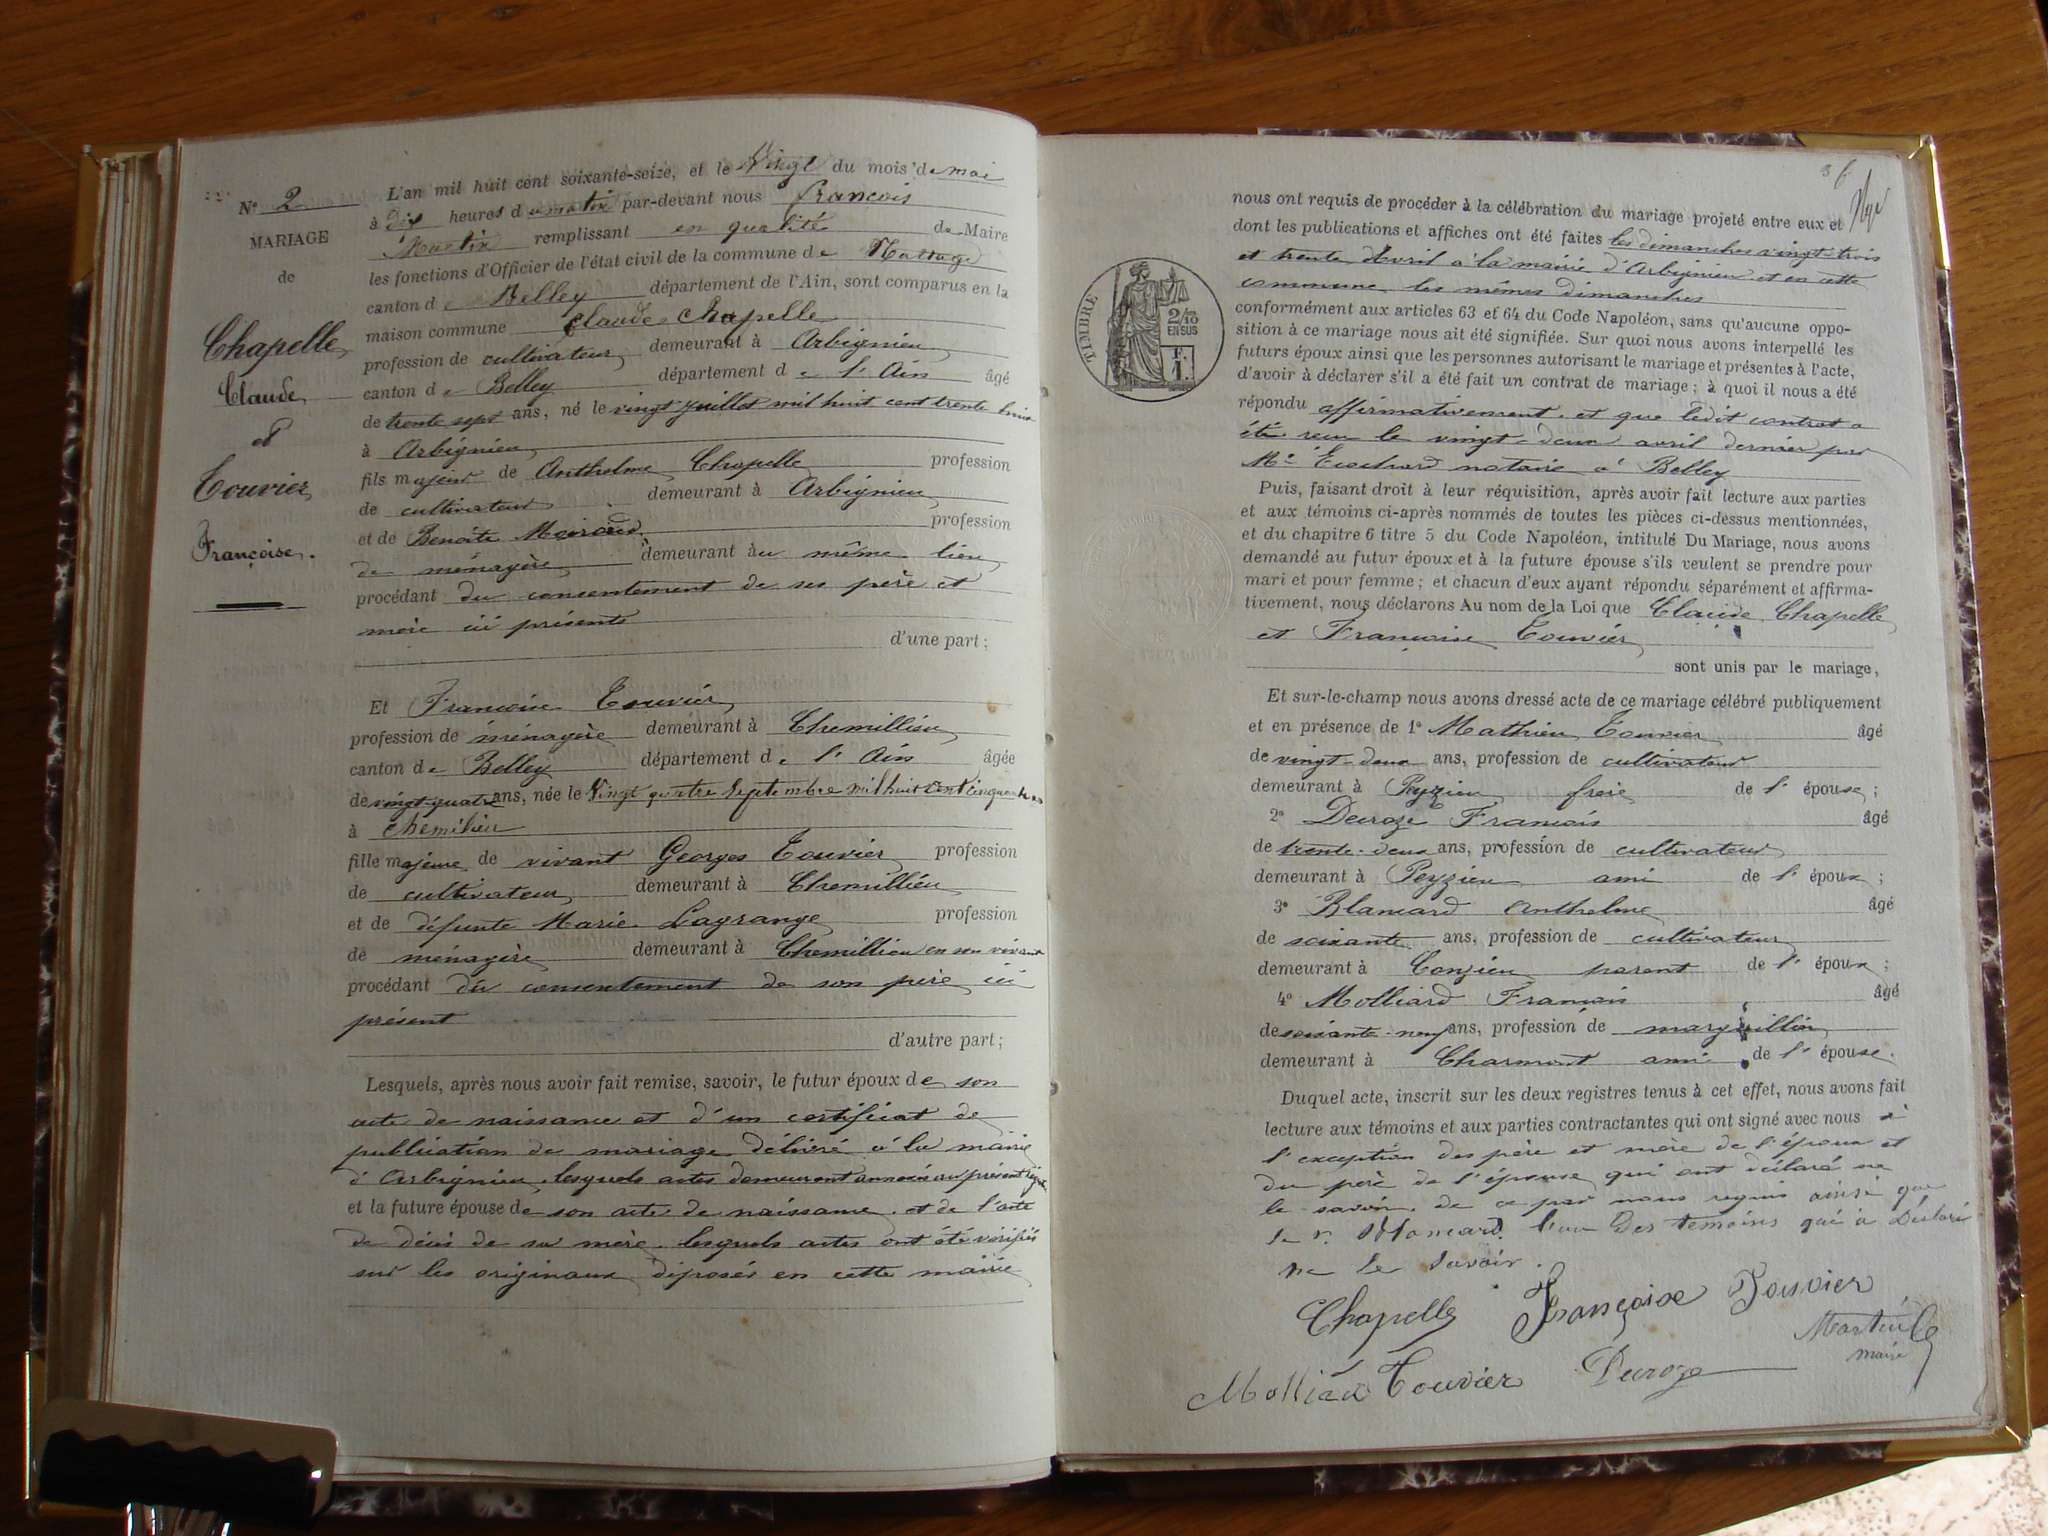 Nº 2
MARIAGE
de
Chapelle
Claude
et
Touvier
Françoise.
L'an mil huit cent soixante-seize, et le Vingt du mois de mai
à Dix heures du matin par-devant nous françois
Martin remplissant en qualité de Maire
les fonctions d'Officier de l'état civil de la commune de Nattage
canton de Belley département de l'Ain, sont comparus en la
maison commune Claude Chapelle
profession de cultivateur demeurant à Arbignieu
canton de Belley département de l'Ain âgé
de trente sept ans, né le vingt juillet mil huit cent trente huit
à Arbignieu
fils majeur de Anthelme Chapelle profession
de cultivateur demeurant à Arbignieu
et de Benoîte profession
de ménagère demeurant au même lieu
procédant du consentement de ses père et
mère ici présents
d'une part;
Et Françoise Touvier
profession de ménagère demeurant à Chemillieu
canton de Belley département de l'Ain âgée
de vingt-quatre ans, née le Vingt quatre Septembre mil huit cent cinquante un
à Chemilieu
fille majeure de vivant Georges Touvier profession
de cultivateur demeurant à Chemillieu
et de défunte Marie Lagrange profession
de ménagère demeurant à Chemillieu en son vivant
procédant du consentement de son père ici
présent
d'autre part;
Lesquels, après nous avoir fait remise, savoir, le futur époux de son
acte de naissance et d'un certificat de
publication de mariage délivré à la mairie
d'Arbignieu, lesquels actes demeurent annexés au présent registre
et la future épouse de son acte de naissance, et de l'acte
de décès de sa mère, lesquels actes ont été vérifiés
sur les originaux déposés en cette mairie
36
nous ont requis de procéder à la célébration du mariage projeté entre eux et
dont les publications et affiches ont été faites les dimanches vingt-trois
et trente avril à la mairie d'Arbignieu et en cette
commune les mêmes dimanches
TIMBRE
2/10
EN SUS
F.
1.
conformément aux articles 63 et 64 du Code Napoléon, sans qu'aucune oppo-
sition à ce mariage nous ait été signifiée. Sur quoi nous avons interpellé les
futurs époux ainsi que les personnes autorisant le mariage et présentes à l'acte,
d'avoir à déclarer s'il a été fait un contrat de mariage; à quoi il nous a été
répondu affirmativement, et que ledit contrat a
été reçu le vingt-deux avril dernier par
Me notaire à Belley
Puis, faisant droit à leur réquisition, après avoir fait lecture aux parties
et aux témoins ci-après nommés de toutes les pièces ci-dessus mentionnées,
et du chapitre 6 titre 5 du Code Napoléon, intitulé Du Mariage, nous avons
demandé au futur époux et à la future épouse s'ils veulent se prendre pour
mari et pour femme; et chacun d'eux ayant répondu séparément et affirma-
tivement, nous déclarons Au nom de la Loi que Claude Chapelle
et Françoise Touvier
sont unis par le mariage,
Et sur-le-champ nous avons dressé acte de ce mariage célébré publiquement
et en présence de 1º Mathieu Touvier âgé
de vingt-deux ans, profession de cultivateur
demeurant à Peyzieu frère de l'épouse;
2º Decroze François âgé
de trente-deux ans, profession de cultivateur
demeurant à Peyzieu ami de l'époux;
3º Blancard Anthelme âgé
de soixante ans, profession de cultivateur
demeurant à Conzieu parent de l'époux;
4º Molliard François âgé
de soixante-neuf ans, profession de marguillier
demeurant à Charmont ami de l'épouse.
Duquel acte, inscrit sur les deux registres tenus à cet effet, nous avons fait
lecture aux témoins et aux parties contractantes qui ont signé avec nous à
l'exception des père et mère de l'époux et
du père de l'épouse qui ont déclaré ne
le savoir, de ce par nous requis ainsi que
le Sr. Blancard l'un Des temoins qui a Déclaré
ne le Savoir.
Chapelle Françoise Touvier
Martin
maire
Touvier Decroze